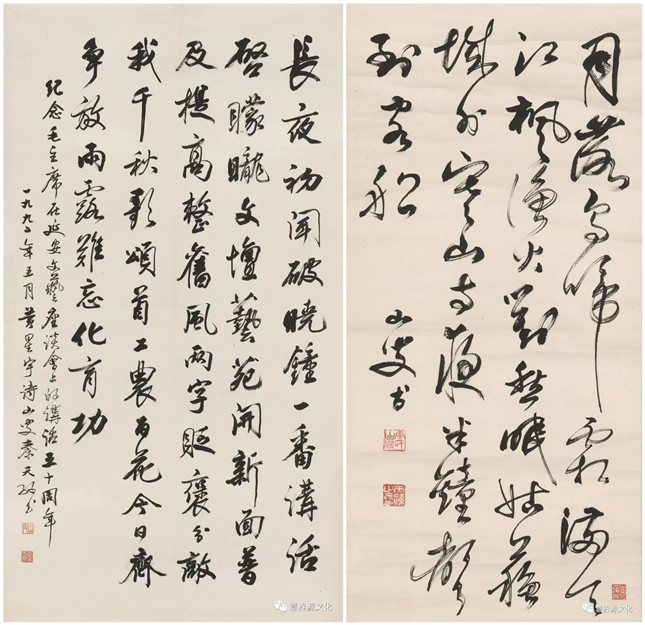 長夜初聞破曉鐘一番講話
啓矇矓文壇藝苑開新面普
及提高整舊風兩字貶褒分敵
我千秋歌頌首工農百花今日齊
争放雨露難忘化育功
紀念毛主席在延安文藝座談會上的講話五十周年
一九九二年五月黄星宇诗山叟秦天
月落烏啼霜滿天
江楓漁火對愁眠姑蘇
城外寒山寺夜半鐘聲
到客船
山叟书